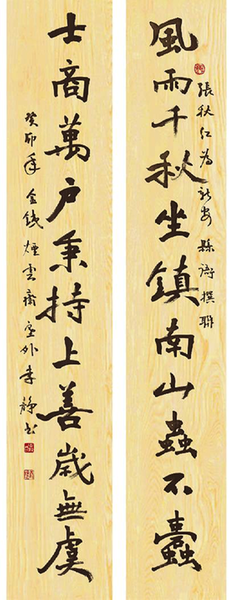 風雨千秋坐鎮南山蟲不蠹
張秋紅為新安縣濤撰聯
士商萬戶秉持上善歲無虞
癸卯年金錢煙雲齋室外李靜书